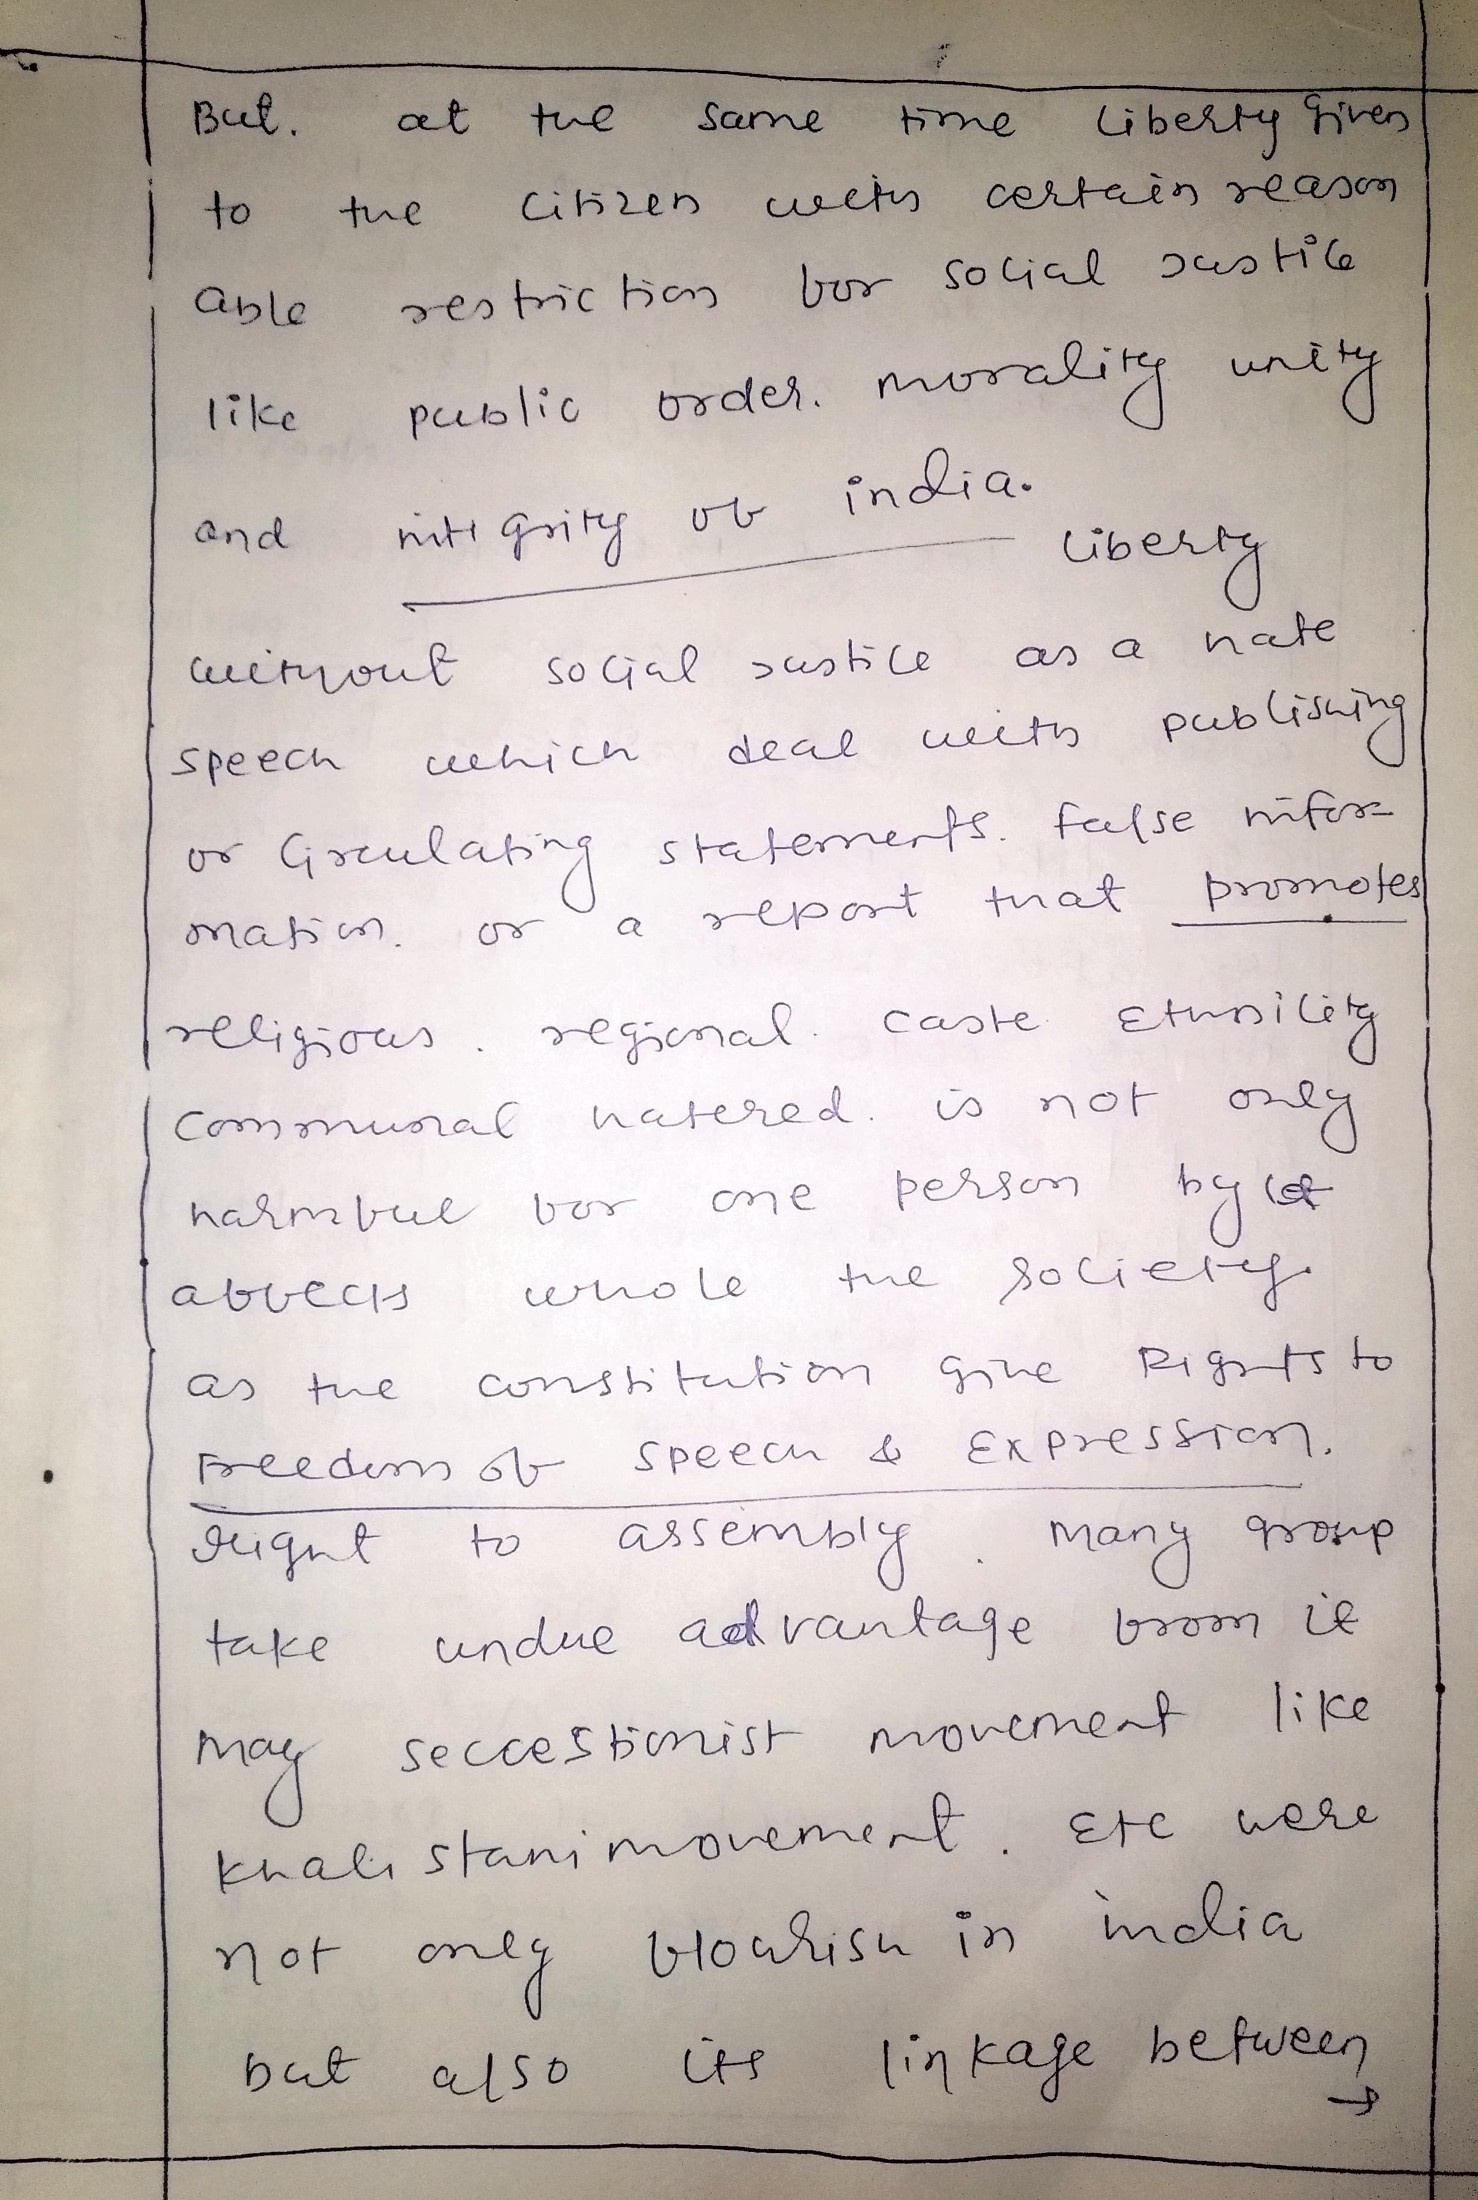 But. at the same time liberty given
to the citizen with certain reason
able restriction for social justice
like public order. morality unity
and intigrity of india.
liberty
without social justice as a hate
speech which deal with publishing
or circulating statements. false infor-
mation. or a report that promotes
religious. regional. caste ethnicity
communal hatered. is not only
harmful for one person by
affects whole the society.
as the constitution give Rights to
Freedom of speech & Expression.
right to assembly. many group
take undue advantage from it
may seccestionist movement like
khalistani movement. Etc were
not only flourish in india
but also its linkage between
→